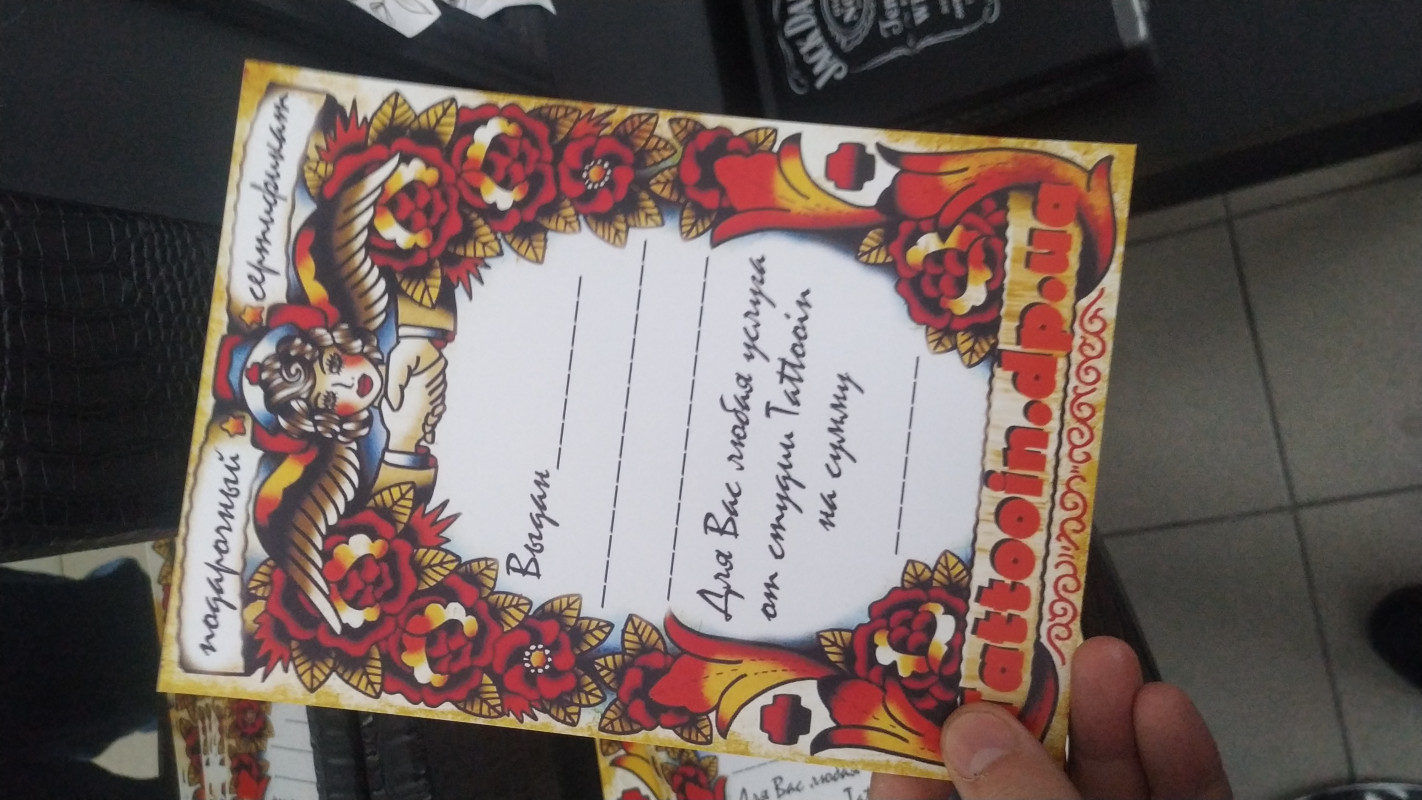 подарочный сертификат
Выдан
Для Вас любая услуга
от студии Tattooin
на сумму
tattooin.dp.ua
Для Вас любая